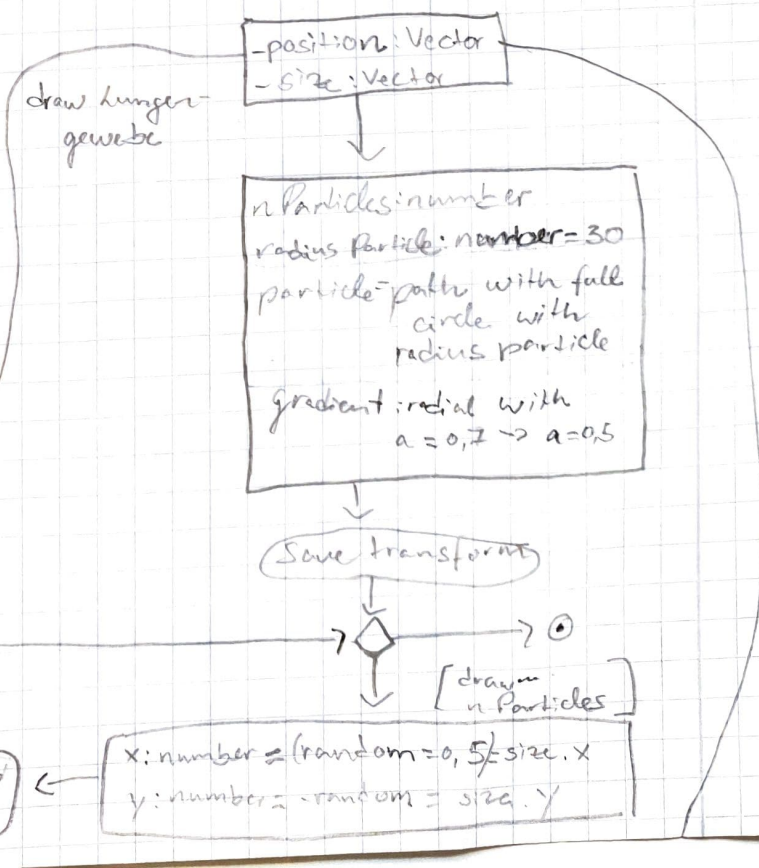 -position: Vector
-size: Vector
draw Lungen-
gewebe
nParticles: number
radius Particle: number = 30
particle = path with full
circle with
radius particle
gradient: radial with
a = 0,7 -> a = 0,5
Save transform
[drawn
n Particles]
x: number = (random = 0,5) = size.x
y: number = -random = size.y